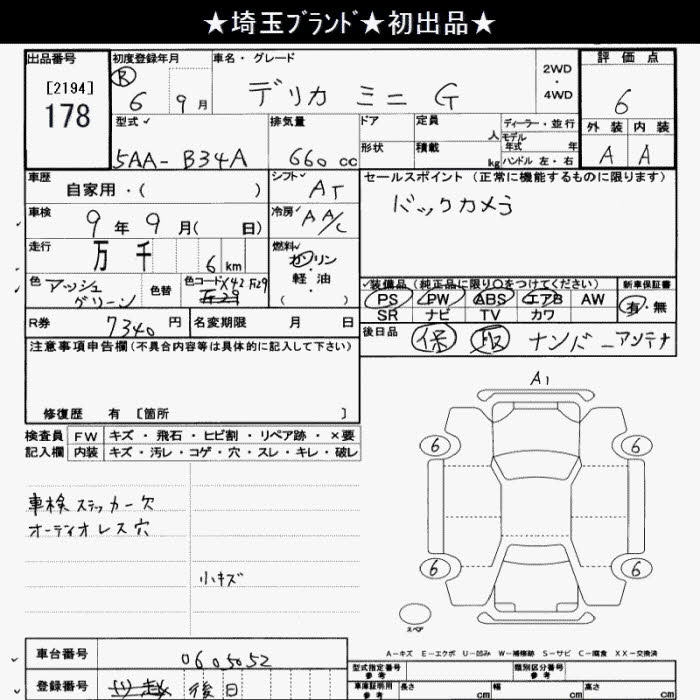 ★埼玉ﾌﾞﾗﾝﾄﾞ★初出品★
出品番号
[2194]
178
初度登録年月
R 6 9 月
車名・グレード
デリカ ミニ G
2WD
・
4WD
評価点
6
外装 内装
A A
型式
5AA-B34A
排気量
660 cc
ドア
形状
定員 人
積載 kg
ディーラー・並行
モデル
年式 年
ハンドル 左・右
車歴
自家用・( )
シフト
AT
セールスポイント (正常に機能するものに限ります)
バックカメラ
車検
9 年 9 月( 日)
冷房
AA/C
走行
万 千 6 km
燃料
ガソリン
・
軽・油
( )
色
アッシュ
グリーン
色替
色コード X42
装備品 (純正品に限り○をつけてください)
新車保証書
PS PW ABS エアB AW
SR ナビ TV カワ
有・無
R券
7340 円
名変期限 月 日
後日品
保 取 ナンバー アンテナ
注意事項申告欄 (不具合内容等は具体的に記入して下さい)
修復歴 有 [箇所 ]
検査員
記入欄
FW キズ・飛石・ヒビ割・リペア跡・×要
内装 キズ・汚レ・コゲ・穴・スレ・キレ・破レ
車検ステッカー欠
オーディオレス穴
小キズ
A1
6 6
6 6
スペア
A-キズ E-エクボ U-凹み W-補修跡 S-サビ C-腐食 XX-交換済
車台番号
0605052
登録番号
後日
型式指定番号
参考
類別区分番号
参考
車庫証明用
参考
長さ cm 幅 cm 高さ cm